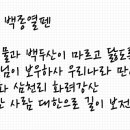 백종열펜
물과 백두산이 마르고 닳도록
님이 보우하사 우리나라 만
화 삼천리 화려강산
한 사람 대한으로 길이 보전